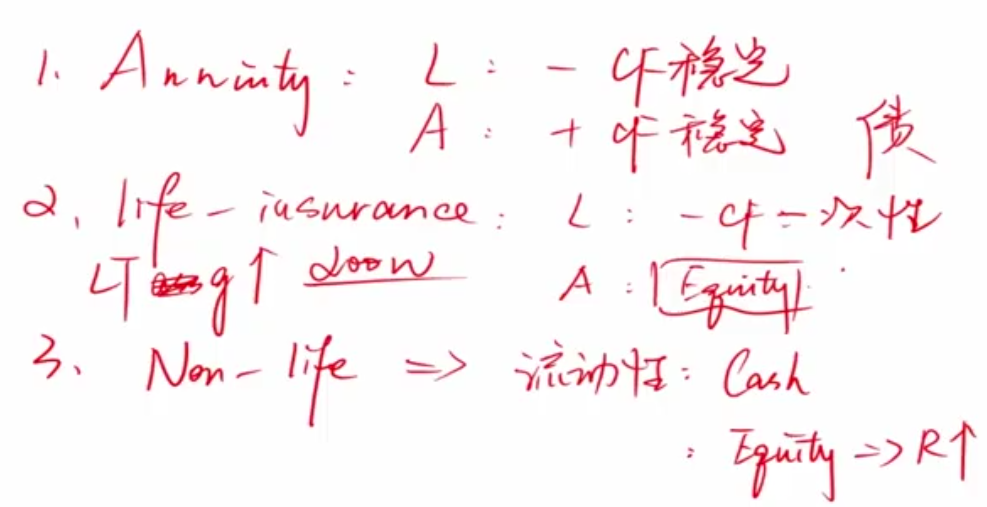 1. Annuity : L : - CF 稳定
A : + CF 稳定 债
2. life-insurance : L : - CF 一次性
LT g↑ 200w A : Equity
3. Non-life => 流动性: Cash
: Equity => R↑